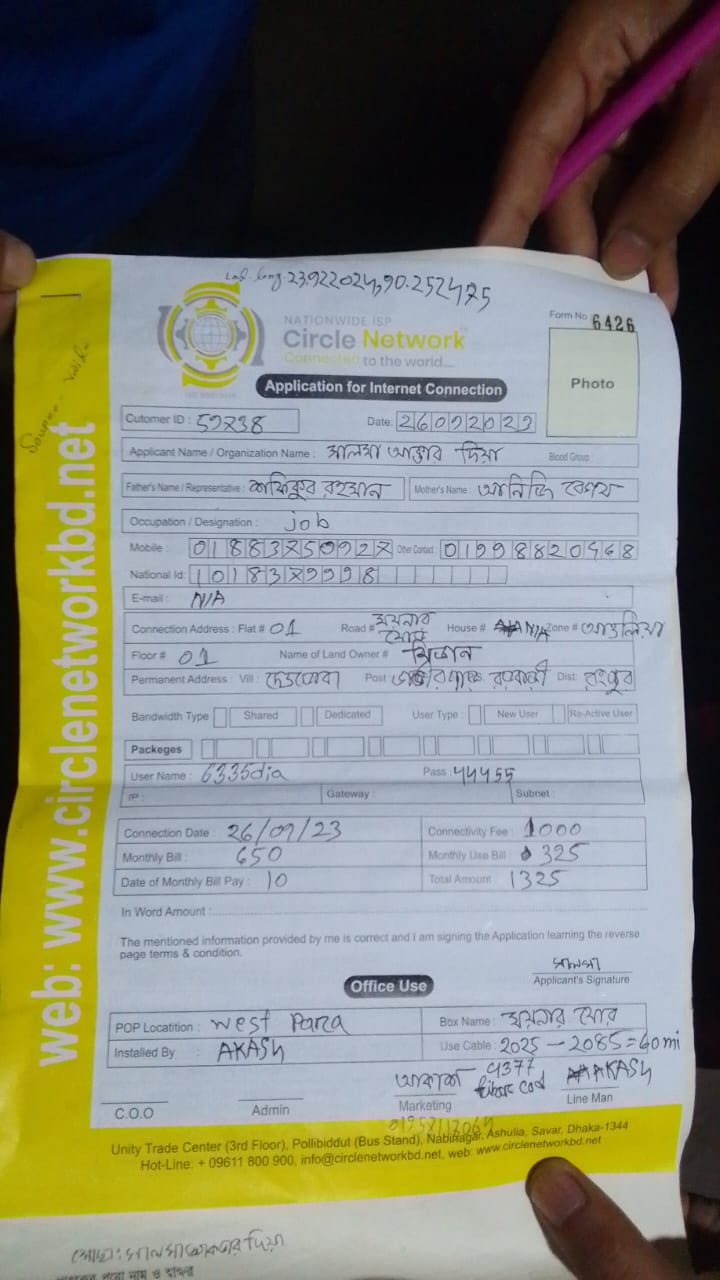 Lat Long 23.922024,90.252475
NATIONWIDE ISP
Circle Network
Connected to the world....
Form No 6426
Photo
Application for Internet Connection
Cutomer ID : 59238 Date: 26092023
Applicant Name / Organization Name : সালমা আক্তার দিয়া Blood Group :
Father's Name / Representative : শফিকুর রহমান Mother's Name :
Occupation / Designation : job
Mobile : Other Contact :
National Id:
E-mail : N/A
Connection Address : Flat # 01 Road # House # N/A Zone # আশুলিয়া
Floor # 01 Name of Land Owner #
Permanent Address : Vill : Post : Dist: রংপুর
Bandwidth Type Shared Dedicated User Type : New User Re-Active User
Packeges
User Name : 6335dia Pass : 44455
IP : Gateway : Subnet :
Connection Date : 26/09/23 Connectivity Fee : 1000
Monthly Bill : 650 Monthly Use Bill : 325
Date of Monthly Bill Pay : 10 Total Amount : 1325
In Word Amount :
The mentioned information provided by me is correct and i am signing the Application learning the reverse
page terms & condition.
সালমা
Applicant's Signature
Office Use
POP Locatition : West Para Box Name :
Installed By : AKASH Use Cable : 2025 - 2085 = 60 mi
আকাশ 4377 AKASH
fiber cod
C.O.O Admin Marketing Line Man
Unity Trade Center (3rd Floor), Pollibiddut (Bus Stand), Nabinagar, Ashulia, Savar, Dhaka-1344
Hot-Line: + 09611 800 900, info@circlenetworkbd.net, web: www.circlenetworkbd.net
web: www.circlenetworkbd.net